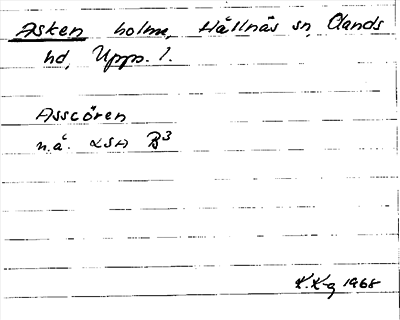 Asken holme, Hållnäs sn, Olands
hd, Upps. l.
Asscören
n.å. LSA B³
K.K-g 1968